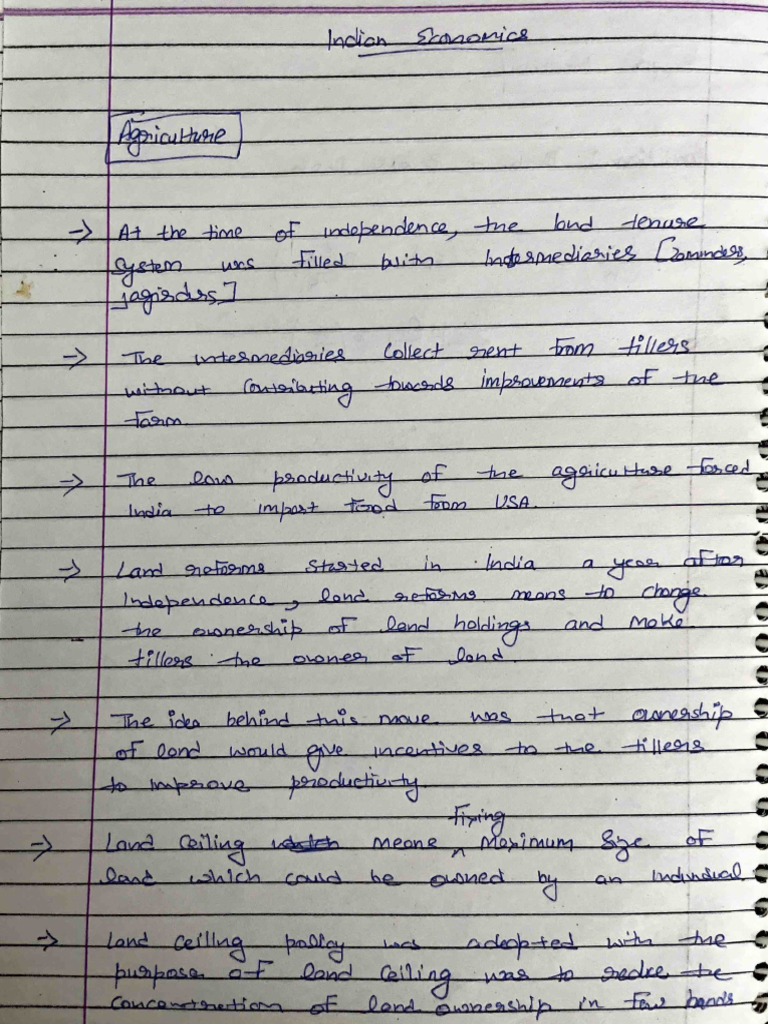 Indian Economics
Agriculture
-> At the time of independence, the land tenure
system was filled with Intermediaries [zaminders,
jagirdrs]
-> The intermediaries collect rent from tillers
without contributing towards improvements of the
farm.
-> The low productivity of the agriculture forced
India to import food from USA.
-> Land reforms started in India a year after
independence, land reforms means to change
the ownership of land holdings and make
tillers the owner of land.
-> The idea behind this move was that ownership
of land would give incentives to the tillers
to improve productivity.
fixing
-> Land Ceiling means ^ Maximum Size of
land which could be owned by an individual
-> Land ceiling policy was adopted with the
purpose of land ceiling was to reduce the
concentration of land ownership in few hands